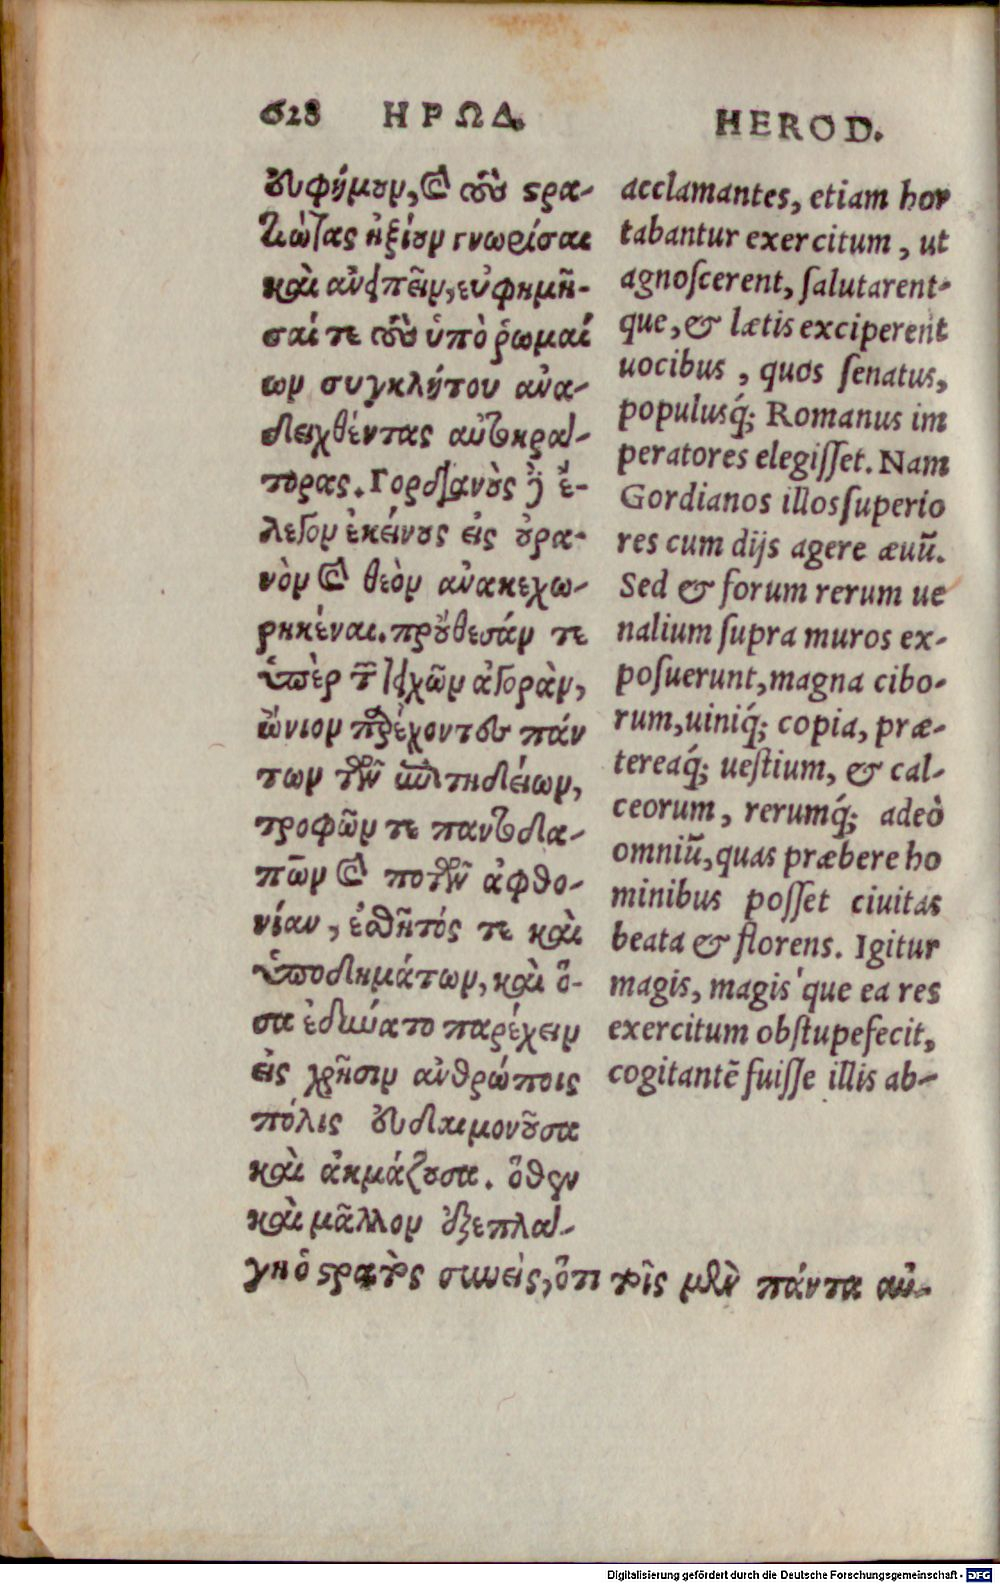 628 ΗΡΩΔ.
HEROD.
εὐφήμουν, καὶ τοὺς στρα-
τιώτας ἠξίουν γνωρίσαι
καὶ ἀνειπεῖν, εὐφημῆ-
σαί τε τοὺς ὑπὸ ῥωμαί
ων συγκλήτου ἀνα-
δειχθέντας αὐτοκρά-
τορας. Γορδιανοὺς δὲ ἔ-
λεγον ἐκείνους εἰς οὐρα-
νὸν καὶ θεὸν ἀνακεχω-
ρηκέναι. προὔθεσάν τε
ὑπὲρ τῶν τειχῶν ἀγορὰν,
ὤνιον παρέχοντες πάν
των τῶν ἐπιτηδείων,
τροφῶν τε παντοδα-
πῶν καὶ ποτῶν ἀφθο-
νίαν, ἐσθῆτός τε καὶ
ὑποδημάτων, καὶ ὅ-
σα ἐδύνατο παρέχειν
εἰς χρῆσιν ἀνθρώποις
πόλις εὐδαιμονοῦσα
καὶ ἀκμάζουσα. ὅθεν
καὶ μᾶλλον ἐξεπλά-
γη ὁ στρατὸς συνεὶς, ὅτι τοῖς μὲν πάντα αὐ-
acclamantes, etiam hor
tabantur exercitum, ut
agnoſcerent, ſalutarent-
que, & lætis exciperent
uocibus, quos ſenatus,
populusq́; Romanus im
peratores elegiſſet. Nam
Gordianos illos ſuperio
res cum dijs agere æuū.
Sed & forum rerum ue
nalium ſupra muros ex-
poſuerunt, magna cibo-
rum, uiniq́; copia, præ-
tereaq́; ueſtium, & cal-
ceorum, rerumq́; adeò
omniū, quas præbere ho
minibus poſſet ciuitas
beata & florens. Igitur
magis, magis'que ea res
exercitum obſtupefecit,
cogitantē fuiſſe illis ab-
Digitalisierung gefördert durch die Deutsche Forschungsgemeinschaft - DFG